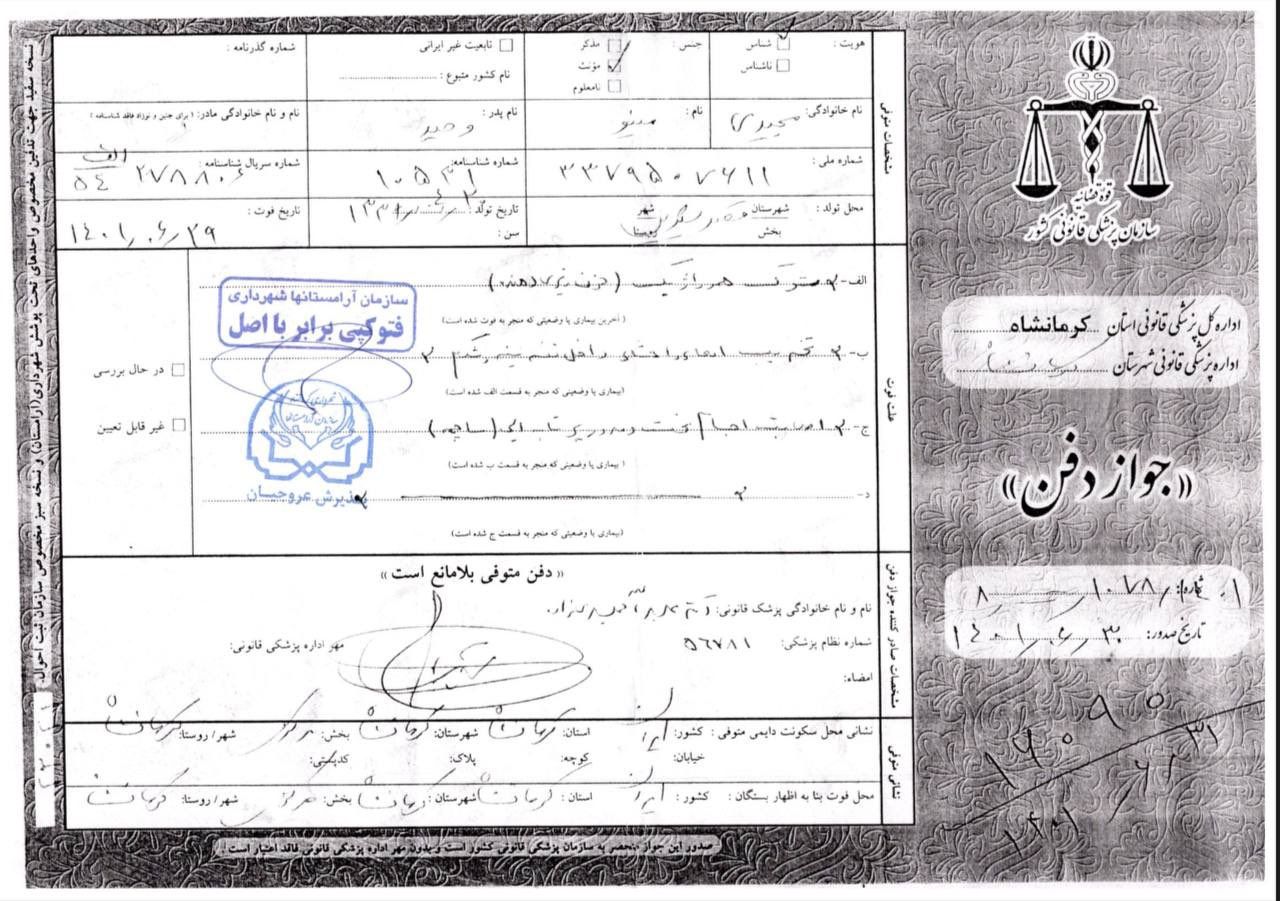 قوه قضائیه
سازمان پزشکی قانونی کشور
اداره کل پزشکی قانونی استان کرمانشاه
اداره پزشکی قانونی شهرستان
«جواز دفن»
شماره:
تاریخ صدور: ۱۴۰۱/۶/۳۰
مشخصات متوفی
هویت: شناس ناشناس
جنس: مذکر مؤنث نامعلوم
تابعیت غیر ایرانی
نام کشور متبوع:
شماره گذرنامه:
نام خانوادگی: مجیدی
نام: مینو
نام پدر: وحید
نام و نام خانوادگی مادر: (برای جنین و نوزاد فاقد شناسنامه)
شماره ملی: ۳۳۷۹۵۰۷۶۱۱
شماره شناسنامه: ۱۰۵۳۱
شماره سریال شناسنامه: الف ۵۴
محل تولد: شهرستان شهر
بخش روستا
تاریخ تولد:
سن:
تاریخ فوت: ۱۴۰۱/۰۶/۲۹
علت فوت
الف- شوک هموراژیک (خونریزی دهنده)
(آخرین بیماری یا وضعیتی که منجر به فوت شده است)
ب-
(بیماری یا وضعیتی که منجر به قسمت الف شده است)
ج- اصابت اجسام سخت و پرتابه‌ای (ساچمه)
(بیماری یا وضعیتی که منجر به قسمت ب شده است)
د-
(بیماری یا وضعیتی که منجر به قسمت ج شده است)
در حال بررسی
غیر قابل تعیین
سازمان آرامستانها شهرداری
فتوکپی برابر با اصل
پذیرش عروجیان
مشخصات صادر کننده جواز دفن
«دفن متوفی بلامانع است»
نام و نام خانوادگی پزشک قانونی:
شماره نظام پزشکی: ۵۶۷۸۱
مهر اداره پزشکی قانونی:
امضاء:
نشانی متوفی
نشانی محل سکونت دایمی متوفی: کشور: ایران استان: کرمانشاه شهرستان: کرمانشاه بخش: مرکزی شهر/روستا: کرمانشاه
خیابان: کوچه: پلاک: کدپستی:
محل فوت بنا به اظهار بستگان: کشور: ایران استان: کرمانشاه شهرستان: کرمانشاه بخش: مرکزی شهر/روستا: کرمانشاه
صدور این جواز منحصر به سازمان پزشکی قانونی کشور است و بدون مهر اداره پزشکی قانونی فاقد اعتبار است.
نسخه سفید جهت تدفین مخصوص واحدهای تحت پوشش شهرداری (آرامستان) و نسخه سبز مخصوص سازمان ثبت احوال.